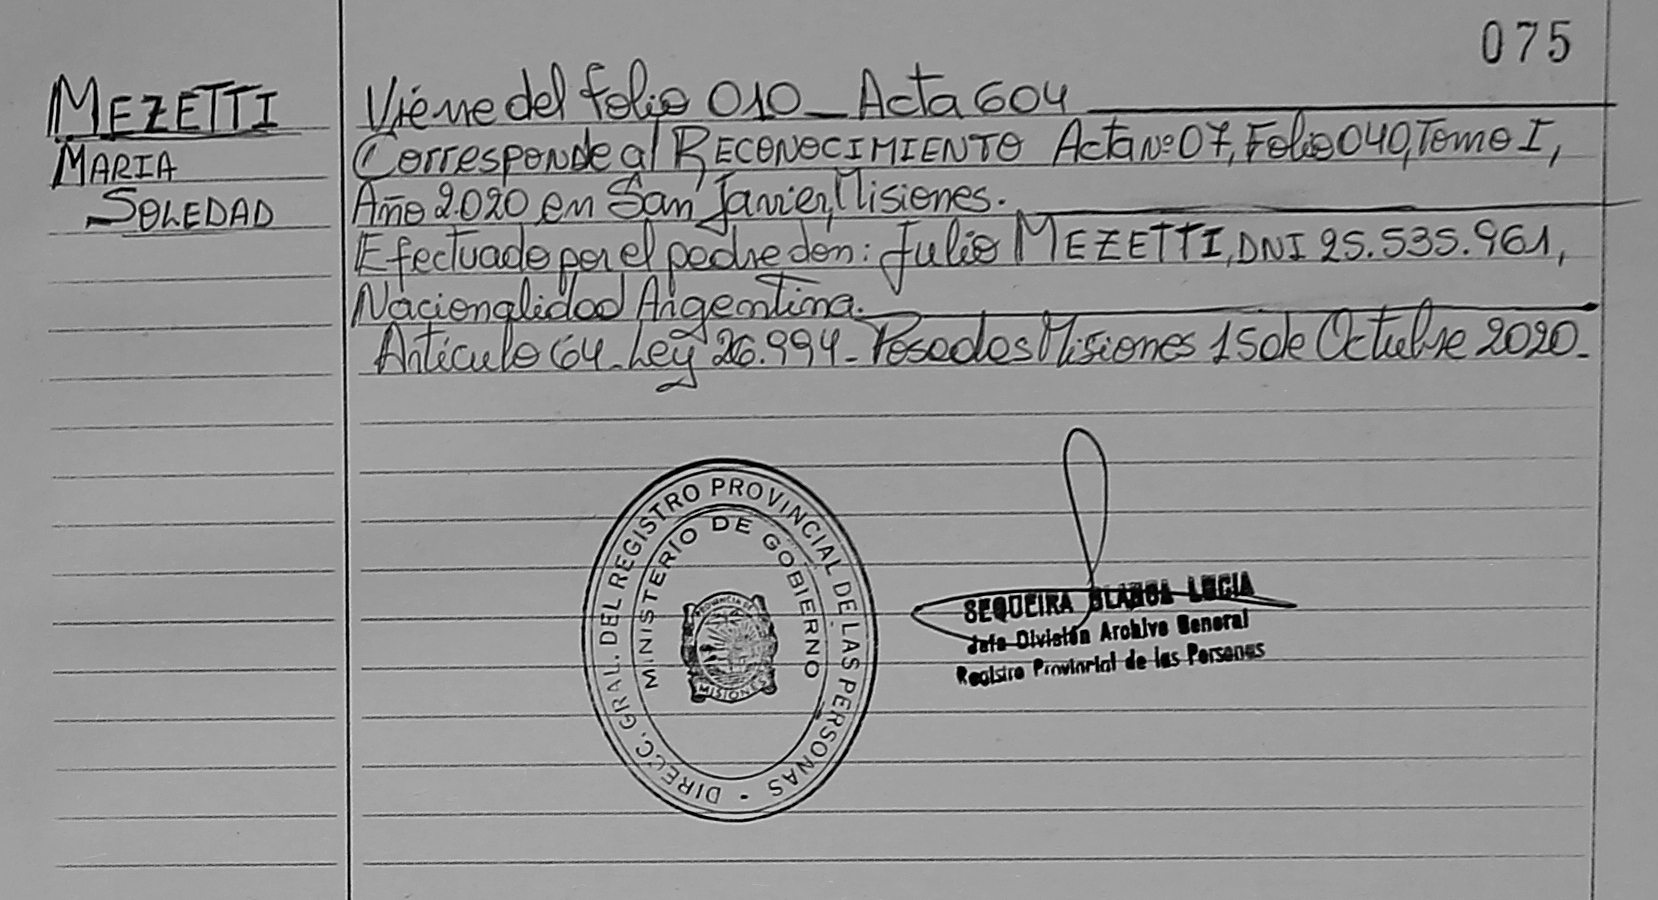 075
MEZETTI
MARIA
SOLEDAD
Viene del folio 010_ Acta 604
Corresponde al RECONOCIMIENTO Acta Nº 07, Folio 040, Tomo I,
Año 2.020 en San Javier, Misiones.
Efectuado por el padre don: Julio MEZETTI, DNI 25.535.961,
Nacionalidad Argentina.
Artículo 64_ Ley 26.994_ Posadas Misiones 15 de Octubre 2020_
DIRECC. GRAL. DEL REGISTRO PROVINCIAL DE LAS PERSONAS -
MINISTERIO DE GOBIERNO
PROVINCIA DE
MISIONES
SEQUEIRA BLANCA LUCIA
Jefe División Archivo General
Registro Provincial de las Personas